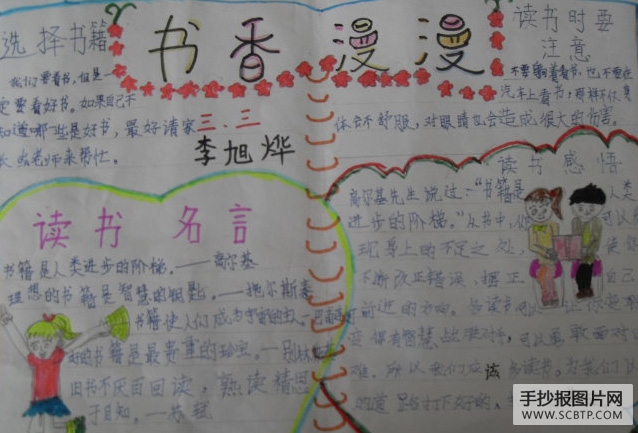 书香漫漫
选择书籍
我们要看书,但是一
定要看好书,如果自己不
知道哪些是好书,最好请家
长或老师来帮忙。
三.三
李旭烨
读书时要
注意
不要躺着看书,也不要在
汽车上看书,那样不仅身
体会不舒服,对眼睛也会造成很大的伤害。
读书名言
书籍是人类进步的阶梯。——高尔基
理想的书籍是智慧的钥匙。——托尔斯泰
书籍使人们成为宇宙的主人。——巴甫连柯
好的书籍是最贵重的珍宝。——别林斯基
旧书不厌百回读,熟读精思
子自知。——苏轼
读书感悟
高尔基先生说过:“书籍是人类
进步的阶梯。”从书中,
现身上的不足之处,
不断改正错误,摆正 自己
前进的方向。
有智慧战胜对手, 可以勇敢面对
难。所以我们应该多读书。为我们
的道路打下好的
手抄报图片网
WWW.SCBTP.COM